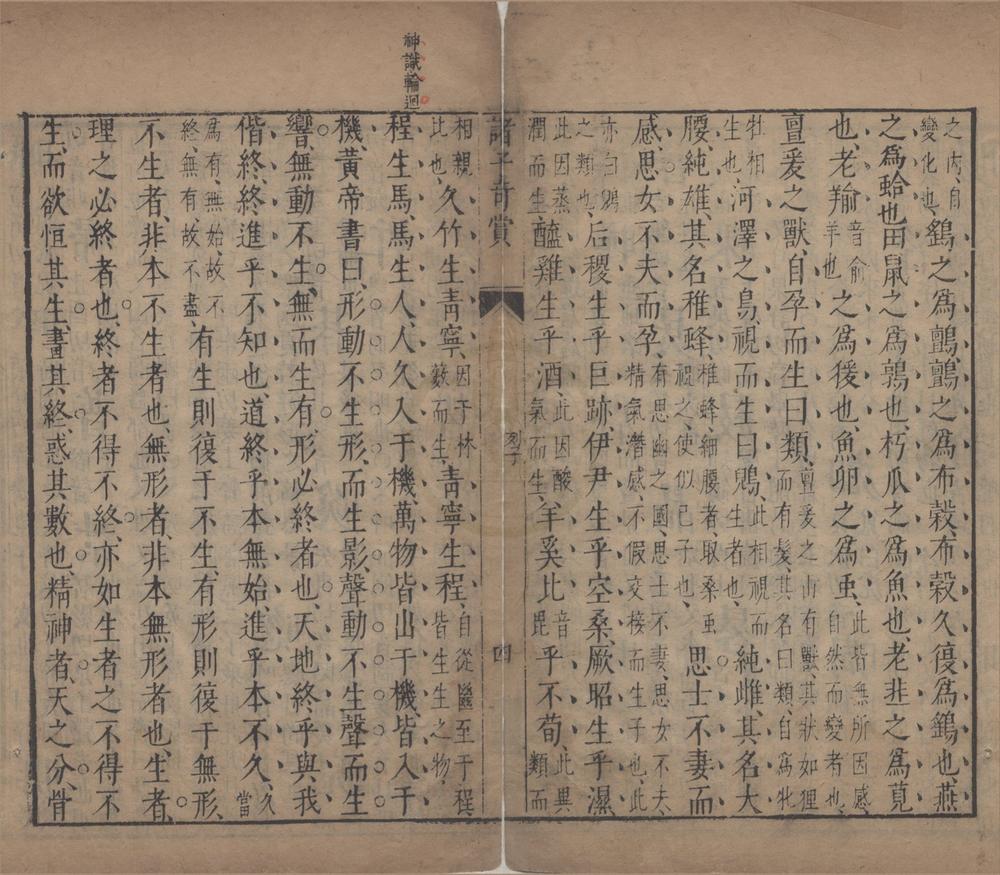 之內自變化也、鷂之爲鸇、鸇之爲布榖、布榖久復爲鷂也、燕
之爲蛤也、田鼠之爲鶉也、朽瓜之爲魚也、老韭之爲莧
也、老羭音俞羊也之爲猨也、魚卵之爲虫、此皆無所因感、自然而變者也、
亶爰之獸、自孕而生曰類、亶爰之山有獸、其狀如狸而有髮、其名曰類、自爲牝
牡相生也、河澤之鳥、視而生曰鶂、此相視而生者也、純雌、其名大
腰、純雄、其名稚蜂、稚蜂、細腰者、取桑虫祝之、使似己子也、思士不妻而
感、思女不夫而孕、有思幽之國、思士不妻、思女不夫、精氣潛感、不假交接而生子也、此
亦白鶂之類也、后稷生乎巨跡、伊尹生乎空桑、厥昭生乎濕、
此因蒸潤而生、醯雞生乎酒、此因酸氣而生、羊奚比音毘乎不荀、此異類而
諸子奇賞 列子 四
相親比也、久竹生青寧、因于林籔而生、青寧生程、自從至于程皆生生之物、
程生馬、馬生人、人久入于機、萬物皆出于機、皆入于
機、黃帝書曰、形動不生形、而生影、聲動不生聲而生
響、無動不生、無而生有、形必終者也、天地終乎、與我
偕終、終進乎、不知也、道終乎本無始、進乎本不久、久當
爲有、無始故不終、無有故不盡、有生則復于不生、有形則復于無形、
不生者、非本不生者也、無形者、非本無形者也、生者、
理之必終者也、終者不得不終、亦如生者之不得不
生、而欲恒其生、畫其終、惑其數也、精神者、天之分、骨
神識輪迴